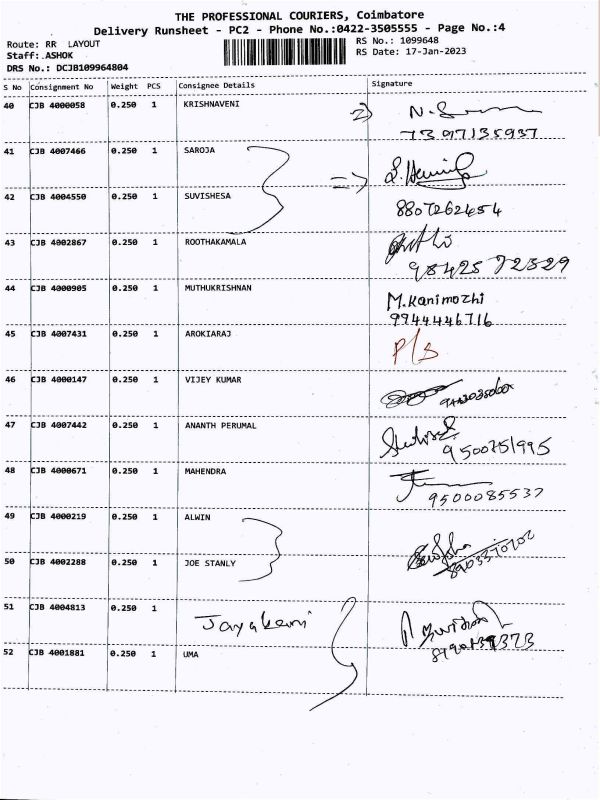 THE PROFESSIONAL COURIERS, Coimbatore
Delivery Runsheet - PC2 - Phone No.:0422-3505555 - Page No.:4
Route: RR LAYOUT
RS No.: 1099648
Staff:.ASHOK
RS Date: 17-Jan-2023
DRS No.: DCJB109964804
S No Consignment No Weight PCS Consignee Details Signature
40 CJB 4000058 0.250 1 KRISHNAVENI
7397135937
41 CJB 4007466 0.250 1 SAROJA
42 CJB 4004550 0.250 1 SUVISHESA
8807262454
43 CJB 4002867 0.250 1 ROOTHAKAMALA
98425 72329
44 CJB 4000905 0.250 1 MUTHUKRISHNAN
M.Kanimozhi
9944446716
45 CJB 4007431 0.250 1 AROKIARAJ P/S
46 CJB 4000147 0.250 1 VIJEY KUMAR
47 CJB 4007442 0.250 1 ANANTH PERUMAL
9500751995
48 CJB 4000671 0.250 1 MAHENDRA
9500085537
49 CJB 4000219 0.250 1 ALWIN
50 CJB 4002288 0.250 1 JOE STANLY
51 CJB 4004813 0.250 1
52 CJB 4001881 0.250 1 UMA